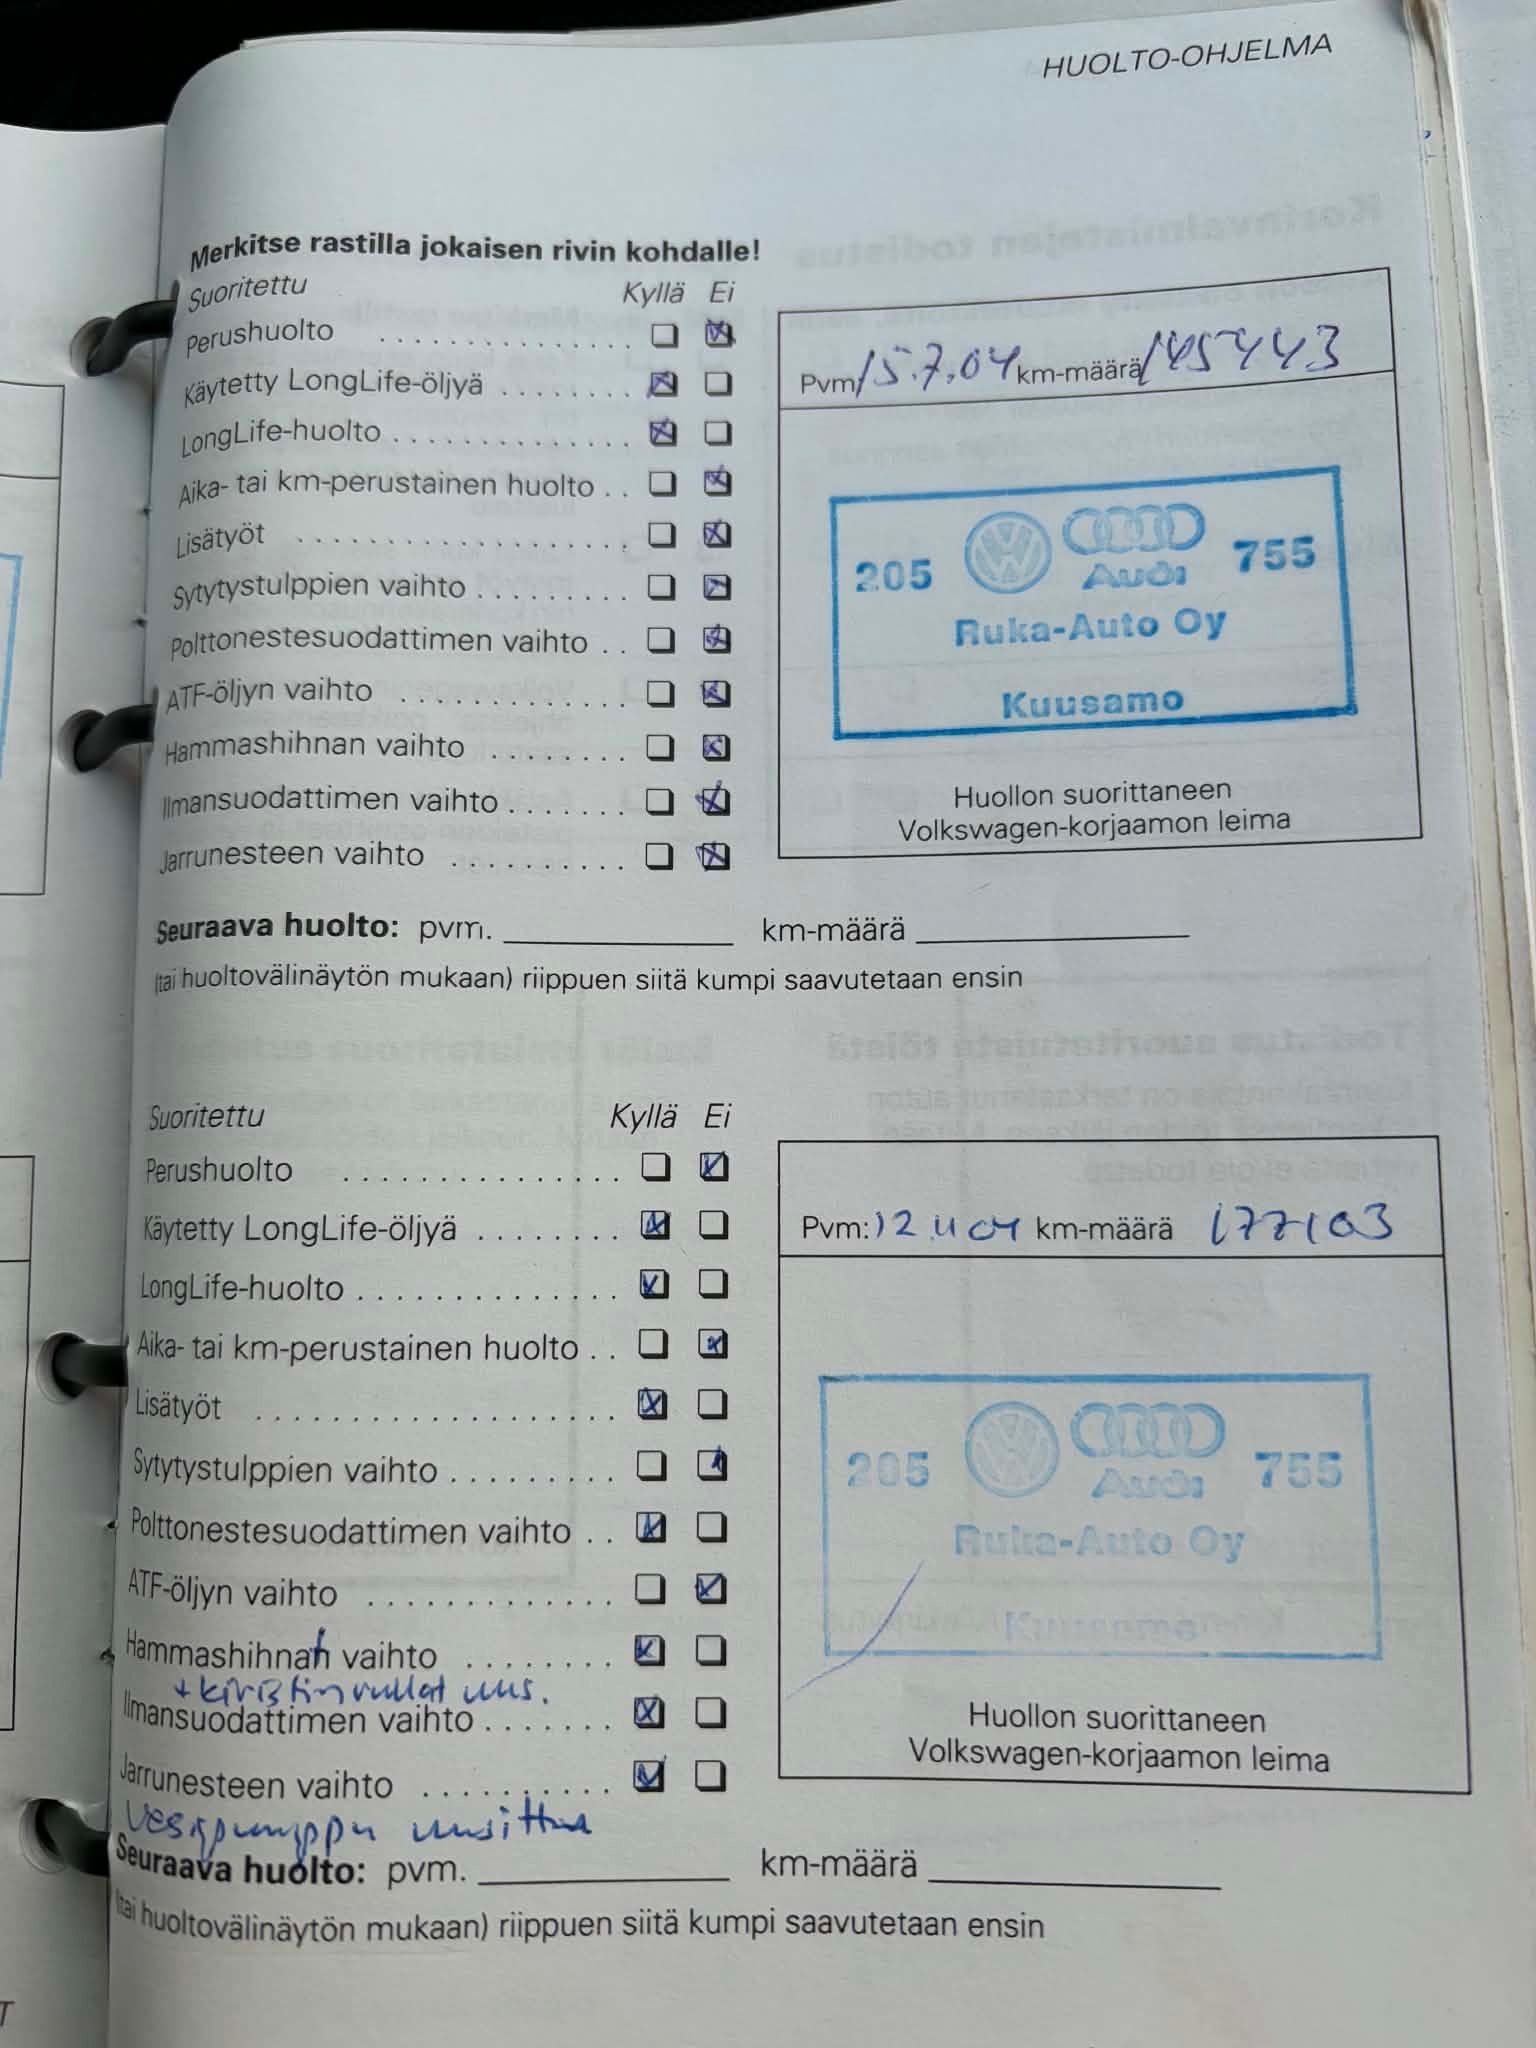 HUOLTO-OHJELMA
Merkitse rastilla jokaisen rivin kohdalle!
Suoritettu Kyllä Ei
Perushuolto
Käytetty LongLife-öljyä
LongLife-huolto
Aika- tai km-perustainen huolto
Lisätyöt
Sytytystulppien vaihto
Polttonestesuodattimen vaihto
ATF-öljyn vaihto
Hammashihnan vaihto
Ilmansuodattimen vaihto
Jarrunesteen vaihto
Pvm 15.7.04 km-määrä 145443
205 755
Audi
Ruka-Auto Oy
Kuusamo
Huollon suorittaneen
Volkswagen-korjaamon leima
Seuraava huolto: pvm. km-määrä
(tai huoltovälinäytön mukaan) riippuen siitä kumpi saavutetaan ensin
Suoritettu Kyllä Ei
Perushuolto
Käytetty LongLife-öljyä
LongLife-huolto
Aika- tai km-perustainen huolto
Lisätyöt
Sytytystulppien vaihto
Polttonestesuodattimen vaihto
ATF-öljyn vaihto
Hammashihnan vaihto
+ kiristinrullat uus.
Ilmansuodattimen vaihto
Jarrunesteen vaihto
Vesipumppu uusittu
Pvm: 12.11 04 km-määrä 177103
205 755
Audi
Ruka-Auto Oy
Kuusamo
Huollon suorittaneen
Volkswagen-korjaamon leima
Seuraava huolto: pvm. km-määrä
(tai huoltovälinäytön mukaan) riippuen siitä kumpi saavutetaan ensin